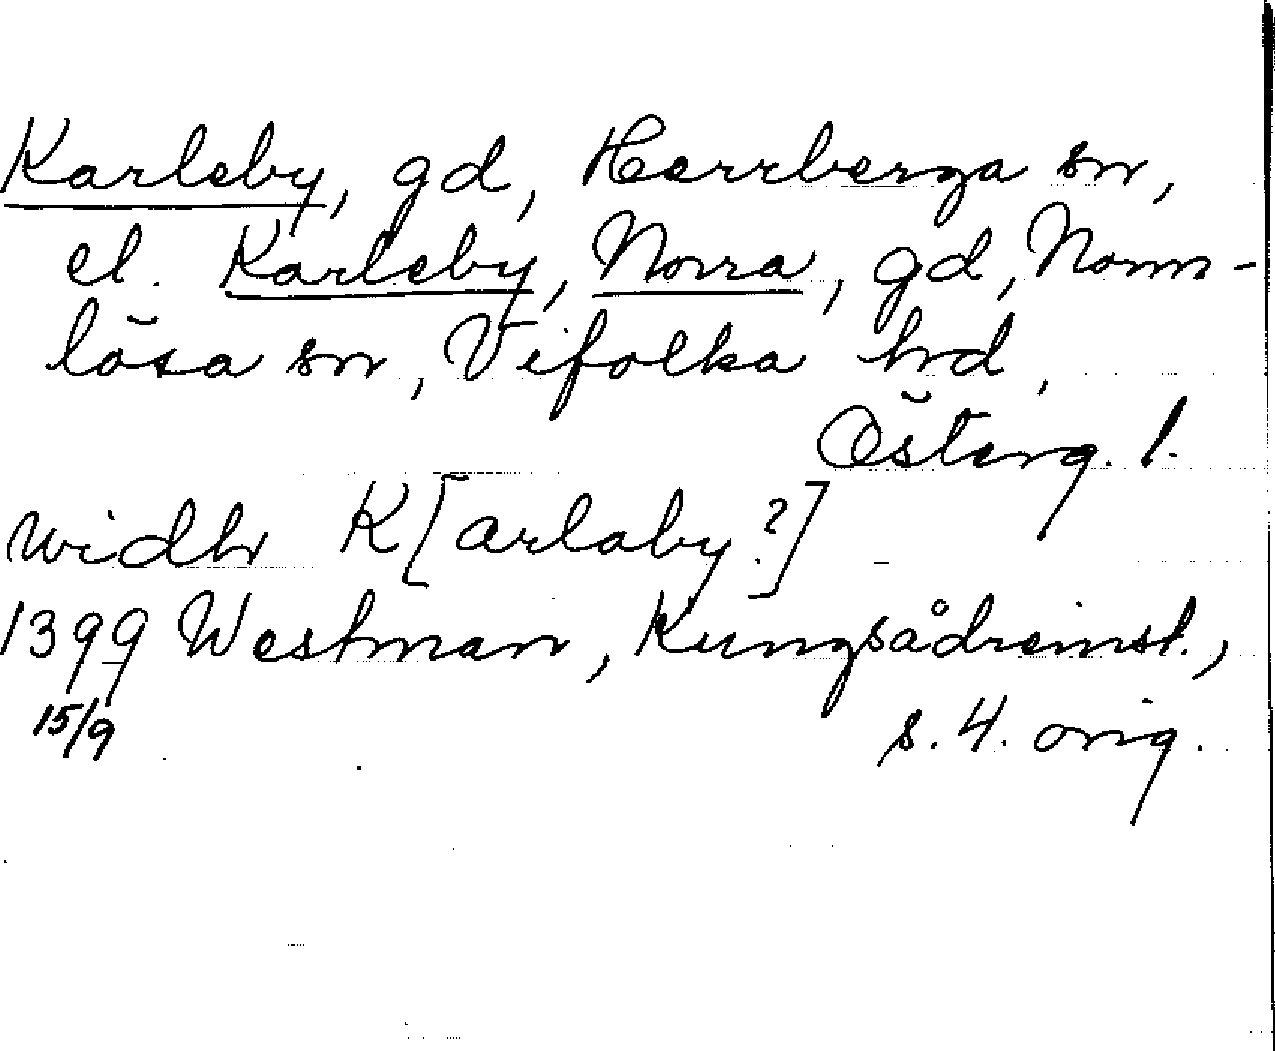 Karleby, gd, Herrberga sn,
el. Karleby, Norra, gd, Norrn-
lösa sn, Vifolka hd,
Österg. l.
widhr K[arlaby?]
1399 Westman, Kungsådreinst.,
15/9 s. 4. orig.